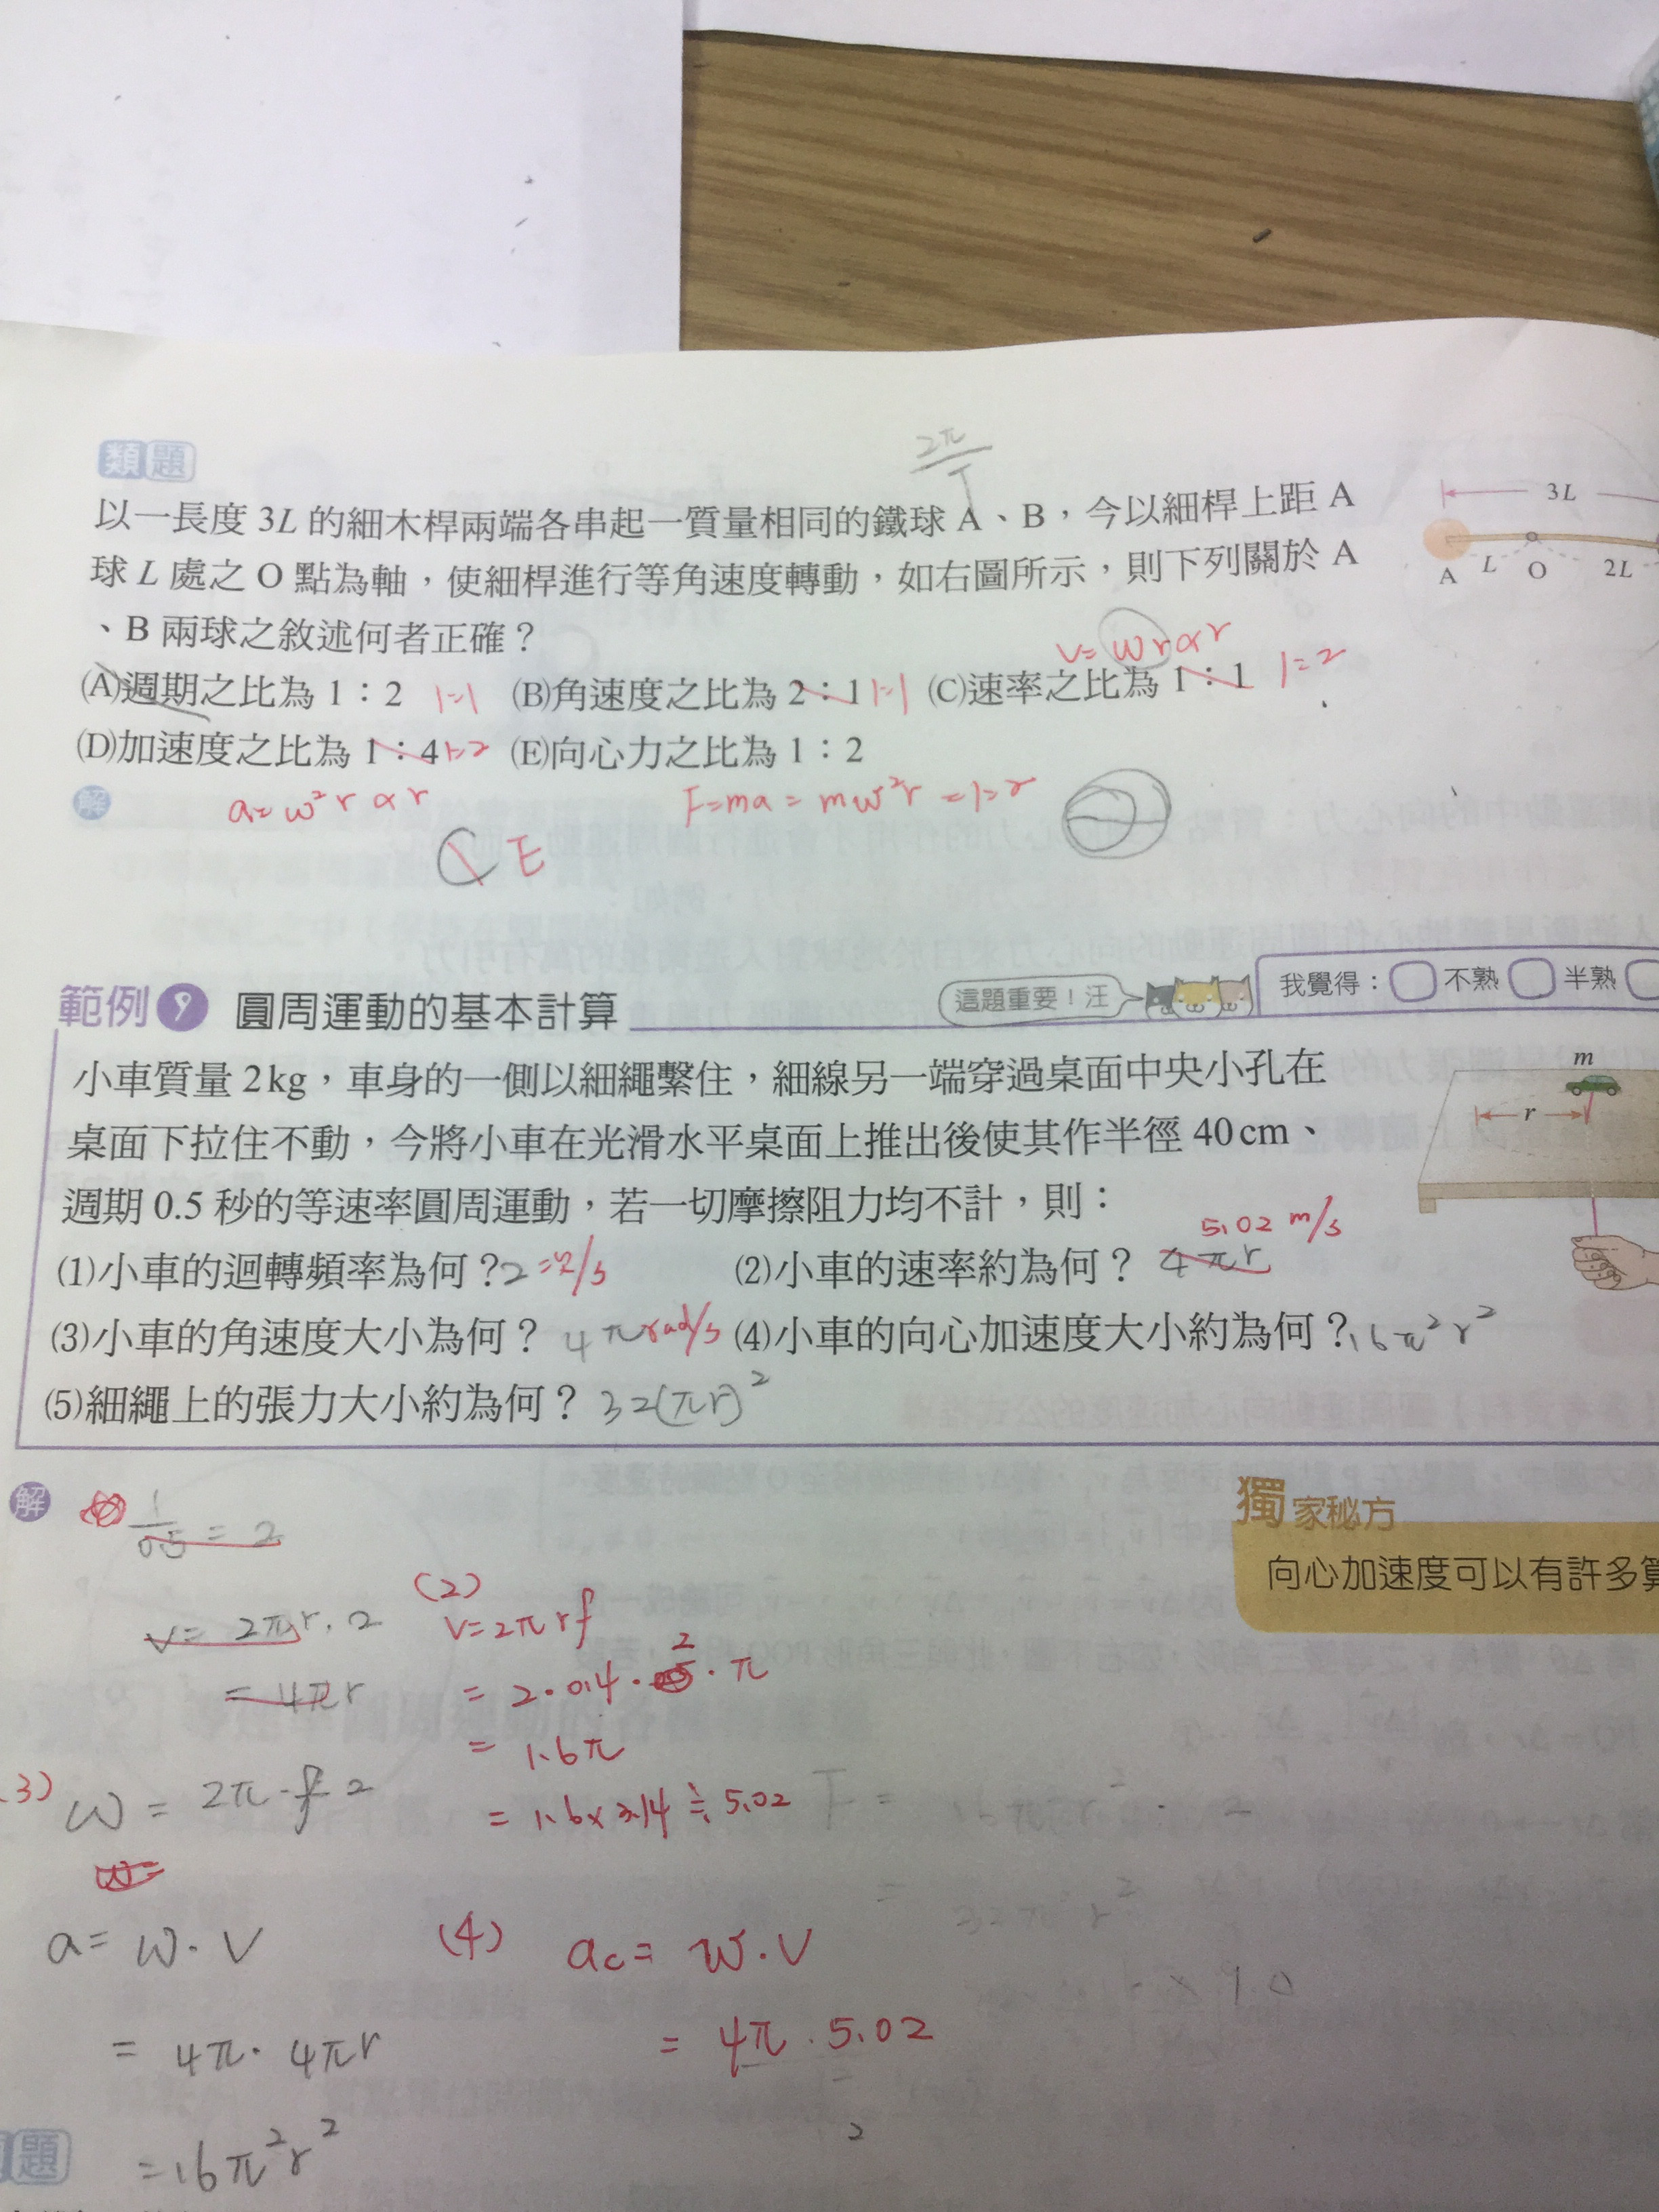 類題
2π/T
以一長度 3L 的細木桿兩端各串起一質量相同的鐵球 A、B，今以細桿上距 A
球 L 處之 O 點為軸，使細桿進行等角速度轉動，如右圖所示，則下列關於 A
、B 兩球之敘述何者正確？
3L
A L O 2L
v=wrαr
(A)週期之比為 1：2 1=1 (B)角速度之比為 2：1 1=1 (C)速率之比為 1：1 1=2
(D)加速度之比為 1：4 1=2 (E)向心力之比為 1：2
解 a=w²r α r F=ma = mw²r =1=2
E
範例9 圓周運動的基本計算
這題重要！汪
我覺得： 不熟 半熟
小車質量 2 kg，車身的一側以細繩繫住，細線另一端穿過桌面中央小孔在
桌面下拉住不動，今將小車在光滑水平桌面上推出後使其作半徑 40 cm、
週期 0.5 秒的等速率圓周運動，若一切摩擦阻力均不計，則：
m
r
(1)小車的迴轉頻率為何？2 (2)小車的速率約為何？ 4πr 5.02 m/s
(3)小車的角速度大小為何？ 4π rad/s (4)小車的向心加速度大小約為何？16π²r²
(5)細繩上的張力大小約為何？ 32(πr)²
解
1/0.5 = 2
v= 2πr.2
= 4πr
(2)
v=2πrf
= 2·0.4·2·π
= 1.6π
= 1.6×3.14≒5.02
獨家秘方
向心加速度可以有許多
3) w = 2π·f 2
w=
F = 16π²r²· 2
= 32π²r²
a= w·v
= 4π· 4πr
=16π²r²
(4) ac= w·v
= 4π·5.02
題